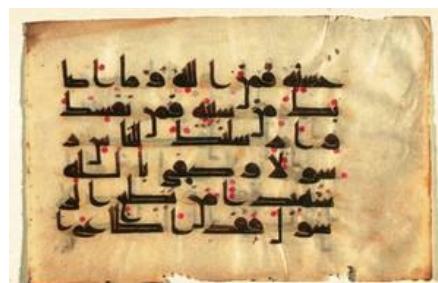 حسنه فمن الله وما اصا
بك من سيئه فمن نفسك
وارسلنك للناس ر
سولا وكفى بالله
شهيدا من يطع الر
سول فقد اطاع ا